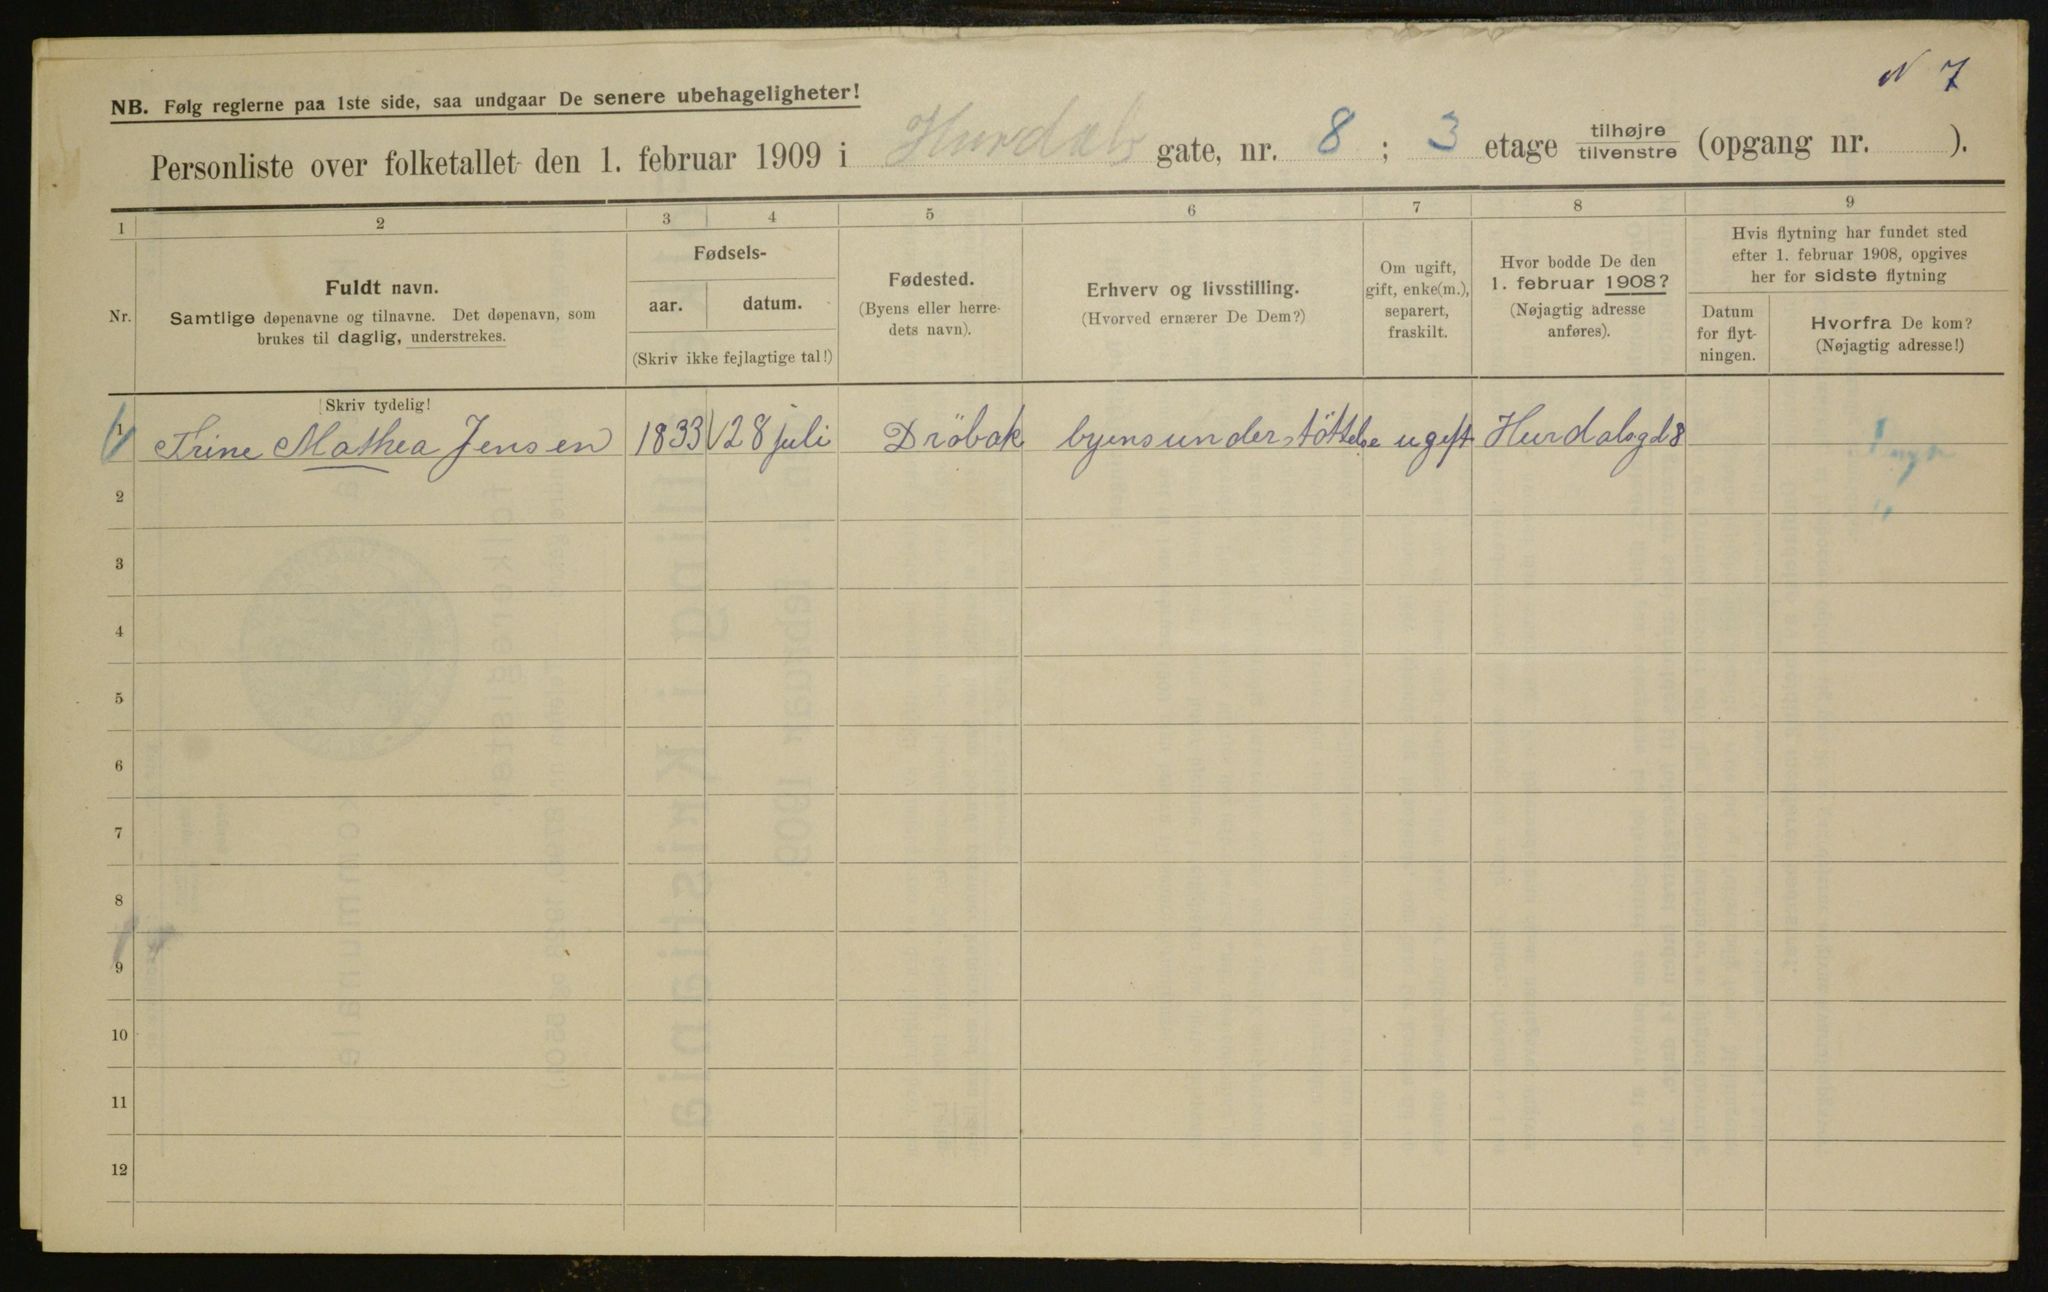 N 7
NB. Følg reglerne paa 1ste side, saa undgaar De senere ubehageligheter!
Personliste over folketallet den 1. februar 1909 i Hurdals gate, nr. 8 ; 3 etage tilhøjre tilvenstre (opgang nr. ).
1 2 3 4 5 6 7 8 9
Nr.
Fuldt navn.
Samtlige døpenavne og tilnavne. Det døpenavn, som
brukes til daglig, understrekes.
Fødsels-
aar. datum.
(Skriv ikke fejlagtige tal!)
Fødested.
(Byens eller herre-
dets navn).
Erhverv og livsstilling.
(Hvorved ernærer De Dem?)
Om ugift,
gift, enke(m.),
separert,
fraskilt.
Hvor bodde De den
1. februar 1908?
(Nøjagtig adresse
anføres).
Hvis flytning har fundet sted
efter 1. februar 1908, opgives
her for sidste flytning
Datum
for flyt-
ningen.
Hvorfra De kom?
(Nøjagtig adresse!)
Skriv tydelig!
1 Trine Mathea Jensen 1833 28 juli Dröbak byensunderstöttelse ugift Hurdalsgd 8
2
3
4
5
6
7
8
9
10
11
12